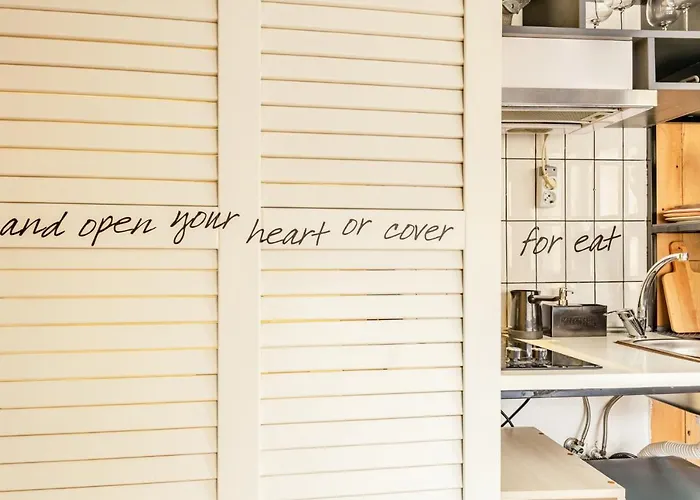 and open your heart or cover for eat